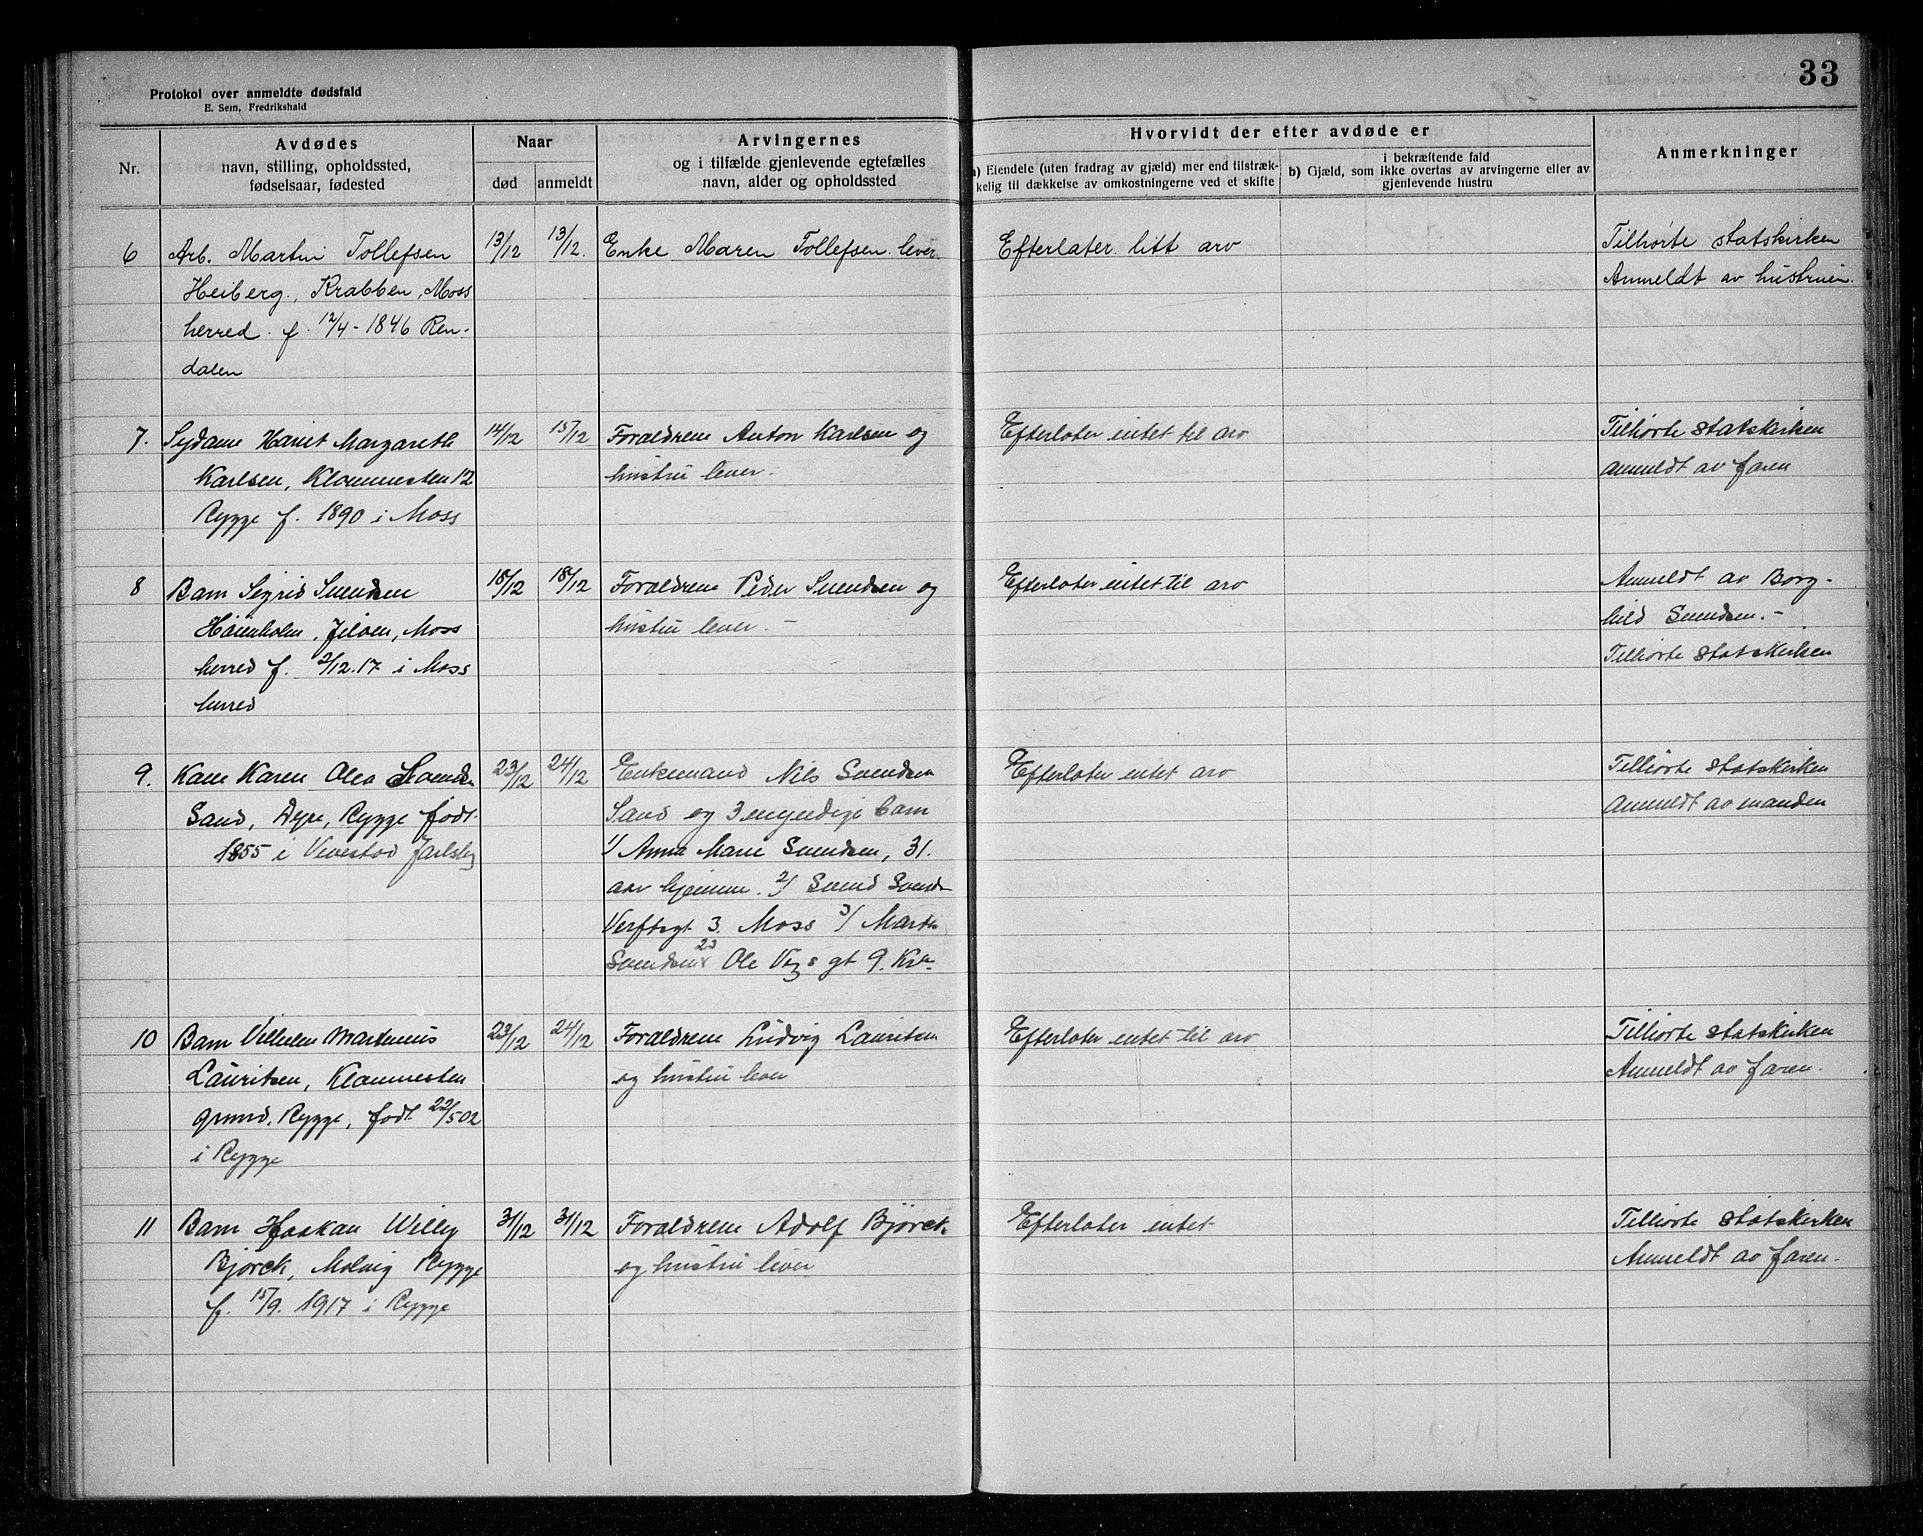 33
Protokol over anmeldte dødsfald
E. Sem, Fredrikshald
Nr.
Avdødes
navn, stilling, opholdssted,
fødselsaar, fødested
Naar
død
anmeldt
Arvingernes
og i tilfælde gjenlevende egtefælles
navn, alder og opholdssted
Hvorvidt der efter avdøde er
a) Eiendele (uten fradrag av gjæld) mer end tilstræk-
kelig til dækkelse av omkostningerne ved et skifte
i bekræftende fald
b) Gjæld, som ikke overtas av arvingerne eller av
gjenlevende hustru
Anmerkninger
6
Arb. Martin Tollefsen
Heiberg, Krabben, Moss
herred. f. 12/4-1846 Ren-
dalen
13/12
13/12.
Enke Maren Tollefsen lever.
Efterlater litt arv
Tilhørte statskirken
Anmeldt av hustruen.
7.
Sydame Hariet Margareth
Karlsen, Klommesten 12
Rygge f. 1890 i Moss
14/12
15/12
Foraldrene Anton Karlsen og
hustru lever.
Efterlater intet til arv
Tilhørte statskirken
anmeldt av faren
8
Barn Sigrid Svendsen
Høienholm, Jeløen, Moss
herred f. 2/12.17 i Moss
herred
18/12
18/12
Foraldrene Peder Svendsen og
hustru lever. -
Efterlater intet til arv
Anmeldt av Borg-
hild Svendsen. -
Tilhørte statskirken
9.
Kone Karen Olea Svends.
Sand, Dyre, Rygge født
1855 i Vivestad Jarlsbg
23/12
24/12
Enkemand Nils Svendsen
Sand og 3 myndige barn
1/ Anna Marie Svendsen, 31.
aar hjemme. 2/ Svend Svends-
Verftsgt 3. Moss 3/ Martin
Svendsen 23 Ole Vigs gt 9. Kra.
Efterlater intet arv
Tilhørte statskirken
Anmeldt av manden
10
Barn Vilhelm Martinius
Lauritsen, Klommesten
grund, Rygge, født 22/5 02
i Rygge
23/12
24/12
Foraldrene Ludvig Lauritsen
og hustru lever
Efterlater intet til arv
Tilhørte statskirken
Anmeldt av faren.
11
Barn Haakan Willy
Bjørck, Molvig Rygge
f. 15/9. 1917 i Rygge
31/12
31/12
Foraldrene Adolf Bjørck
og hustru lever
Efterlater intet
Tilhørte statskirken
Anmeldt av faren.